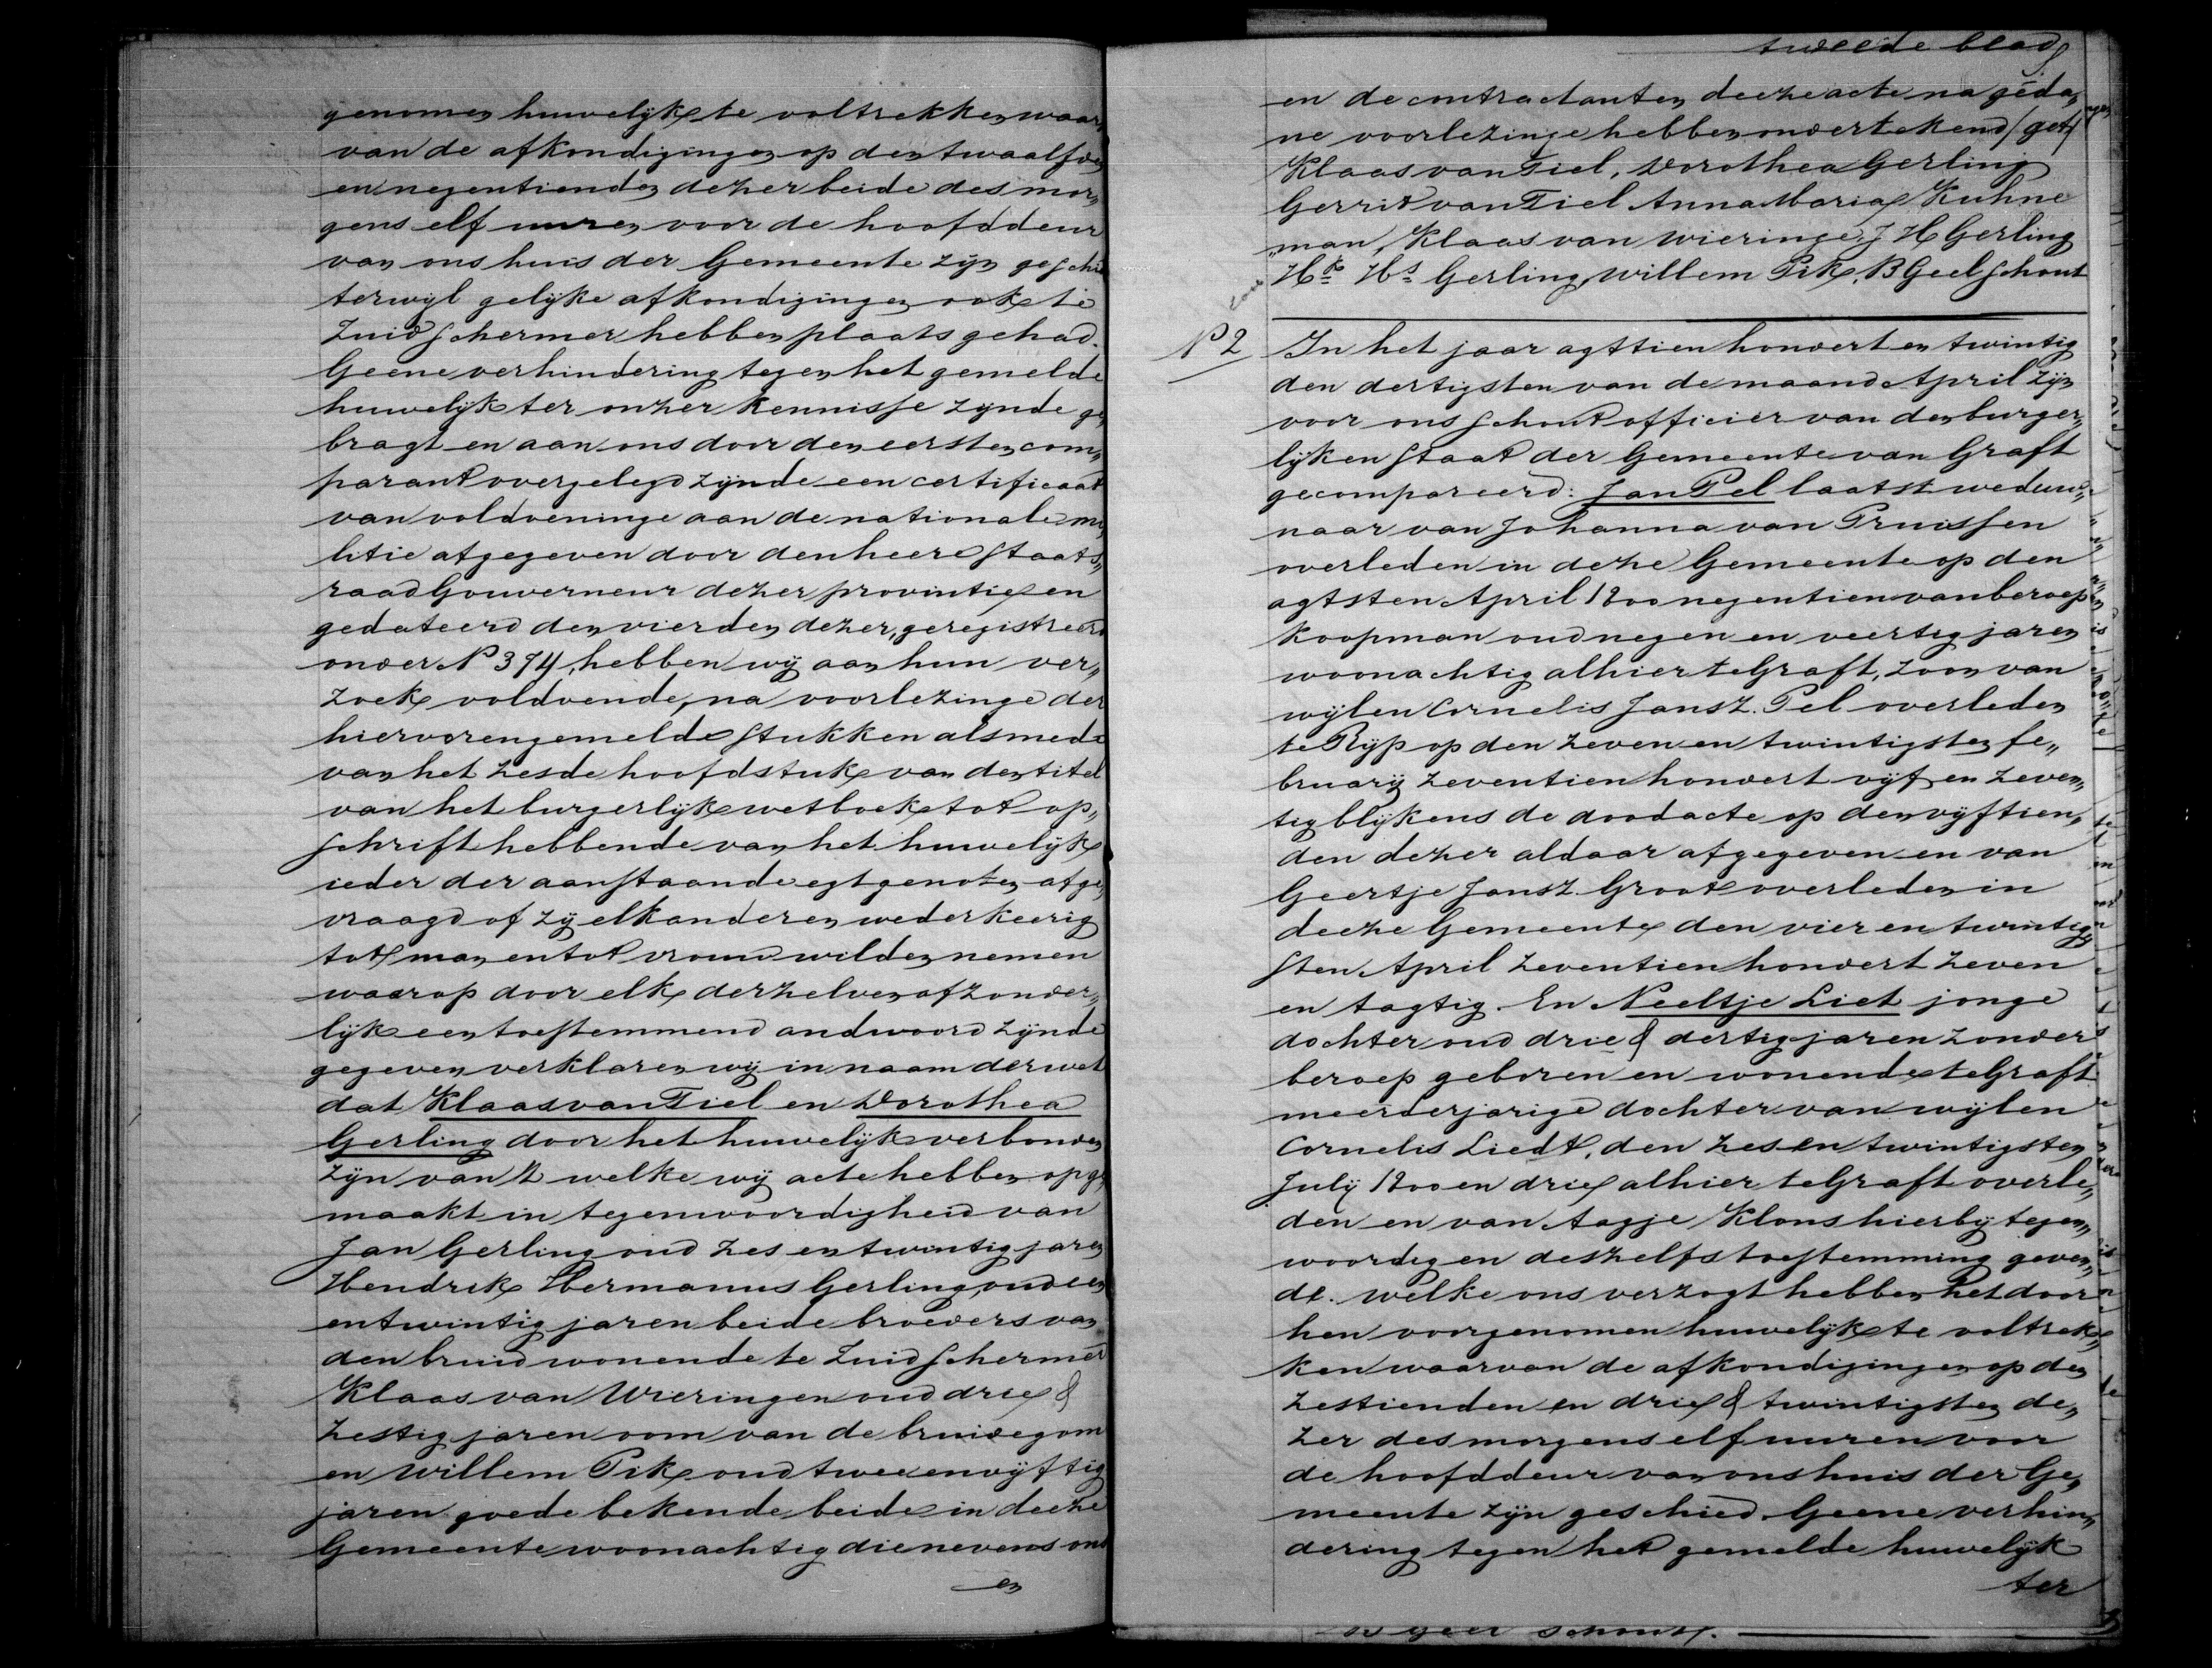 genomen huwelijk te voltrekken waar
van de afkondigingen op den twaalfden
en negentienden dezer beide des mor„
gens elf uuren voor de hoofddeur
van ons huis der Gemeente zijn geschi
terwijl gelijke afkondigingen ook te
Zuidschermer hebben plaats gehad.
Geene verhindering tegen het gemelde
huwelijk ter onzer kennisse zijnde ge„
bragt en aan ons door den eersten com„
parant overgelegd zijnde een certificaat
van voldoeninge aan de nationale mi„
litie afgegeven door den heere Staats„
raad Gouverneur dezer provintie en
gedateerd den vierden dezer, geregistreerd
onder N° 374, hebben wij aan hun ver„
zoek voldoende, na voorlezinge der
hiervorengemelde stukken alsmede
van het zesde hoofdstuk van den titel
van het burgerlijk wetboek tot op„
schrift hebbende van het huwelijk
ieder der aanstaande egtgenoten afge„
vraagd of zij elkanderen wederkeerig
tot man en tot vrouw wilden nemen
waarop door elk derzelven afzonder„
lijk een toestemmend andwoord zijnde
gegeven verklaren wij in naam der wet
dat Klaas van Tiel en Dorothea
Gerling door het huwelijk verbonden
zijn van 't welke wij acte hebben opge„
maakt in tegenwoordigheid van
Jan Gerling oud zes en twintig jaren
Hendrik Hermanus Gerling, oud een
en twintig jaren beide broeders van
den bruid wonende te Zuidschermer
Klaas van Wieringen oud drie &
zestig jaren oom van de bruidegom
en Willem Pik oud twee en vijftig
jaren goede bekende beide in deeze
Gemeente woonachtig die nevens ons
en
tweede blad
en de contractanten deeze acte na geda„
ne voorlezinge hebben ondertekend (get)
Klaas van Tiel, Dorothea Gerling
Gerrit van Tiel Anna Maria Kuhne
„man, Klaas van Wieringe, J H Gerling
Hk Hs Gerling, Willem Pik, B Geel Schout
N° 2
In het jaar agttien hondert en twintig
den dertigsten van de maand April zijn
voor ons schout officier van den burger„
lijken staat der Gemeente van Graft
gecompareerd: Jan Pel laatst weduw„
naar van Johanna van Pruissen
overleden in deze Gemeente op den
agtsten April 1800 negentien van beroep
koopman oud negen en veertig jaren
woonachtig alhier te Graft, zoon van
wijlen Cornelis Jansz. Pel overleden
te Rijp op den zeven en twintigsten fe„
bruarij zeventien hondert vijf en zeven„
tig blijkens de doodacte op den vijftien„
den dezer aldaar afgegeven en van
Geertje Jansz. Groot overleden in
deeze Gemeente den vier en twintig„
sten April zeventien hondert zeven
en tagtig. En Neeltje Liet jonge
dochter oud drie & dertig jaren zonder
beroep geboren en wonende te Graft
meerderjarige dochter van wijlen
Cornelis Liedt, den zes en twintigsten
Julij 1800 en drie alhier te Graft overle„
den en van Aagje Klons hierbij tegen„
woordig en deszelfs toestemming geven„
de. welke ons verzogt hebben het door
hen voorgenomen huwelijk te voltrek„
ken waarvan de afkondigingen op den
zestienden en drie & twintigsten de„
zer des morgens elf uuren voor
de hoofddeur van ons huis der Ge„
meente zijn geschied. Geene verhin„
dering tegen het gemelde huwelijk
ter